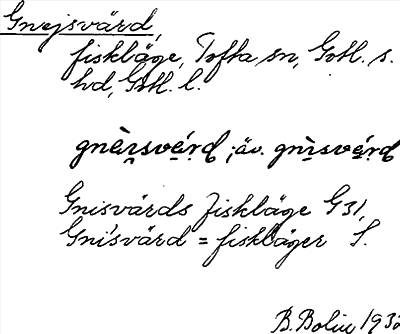 Gnejsvärd,
fiskläge, Tofta sn, Gotl. s.
hd, Gotl. l.
gnèi̯své̱rd; äv. gnìsvé̱rd
Gnisvärds Fiskläge G31,
Gnisvärd = fiskläger S.
B. Bolin 1932